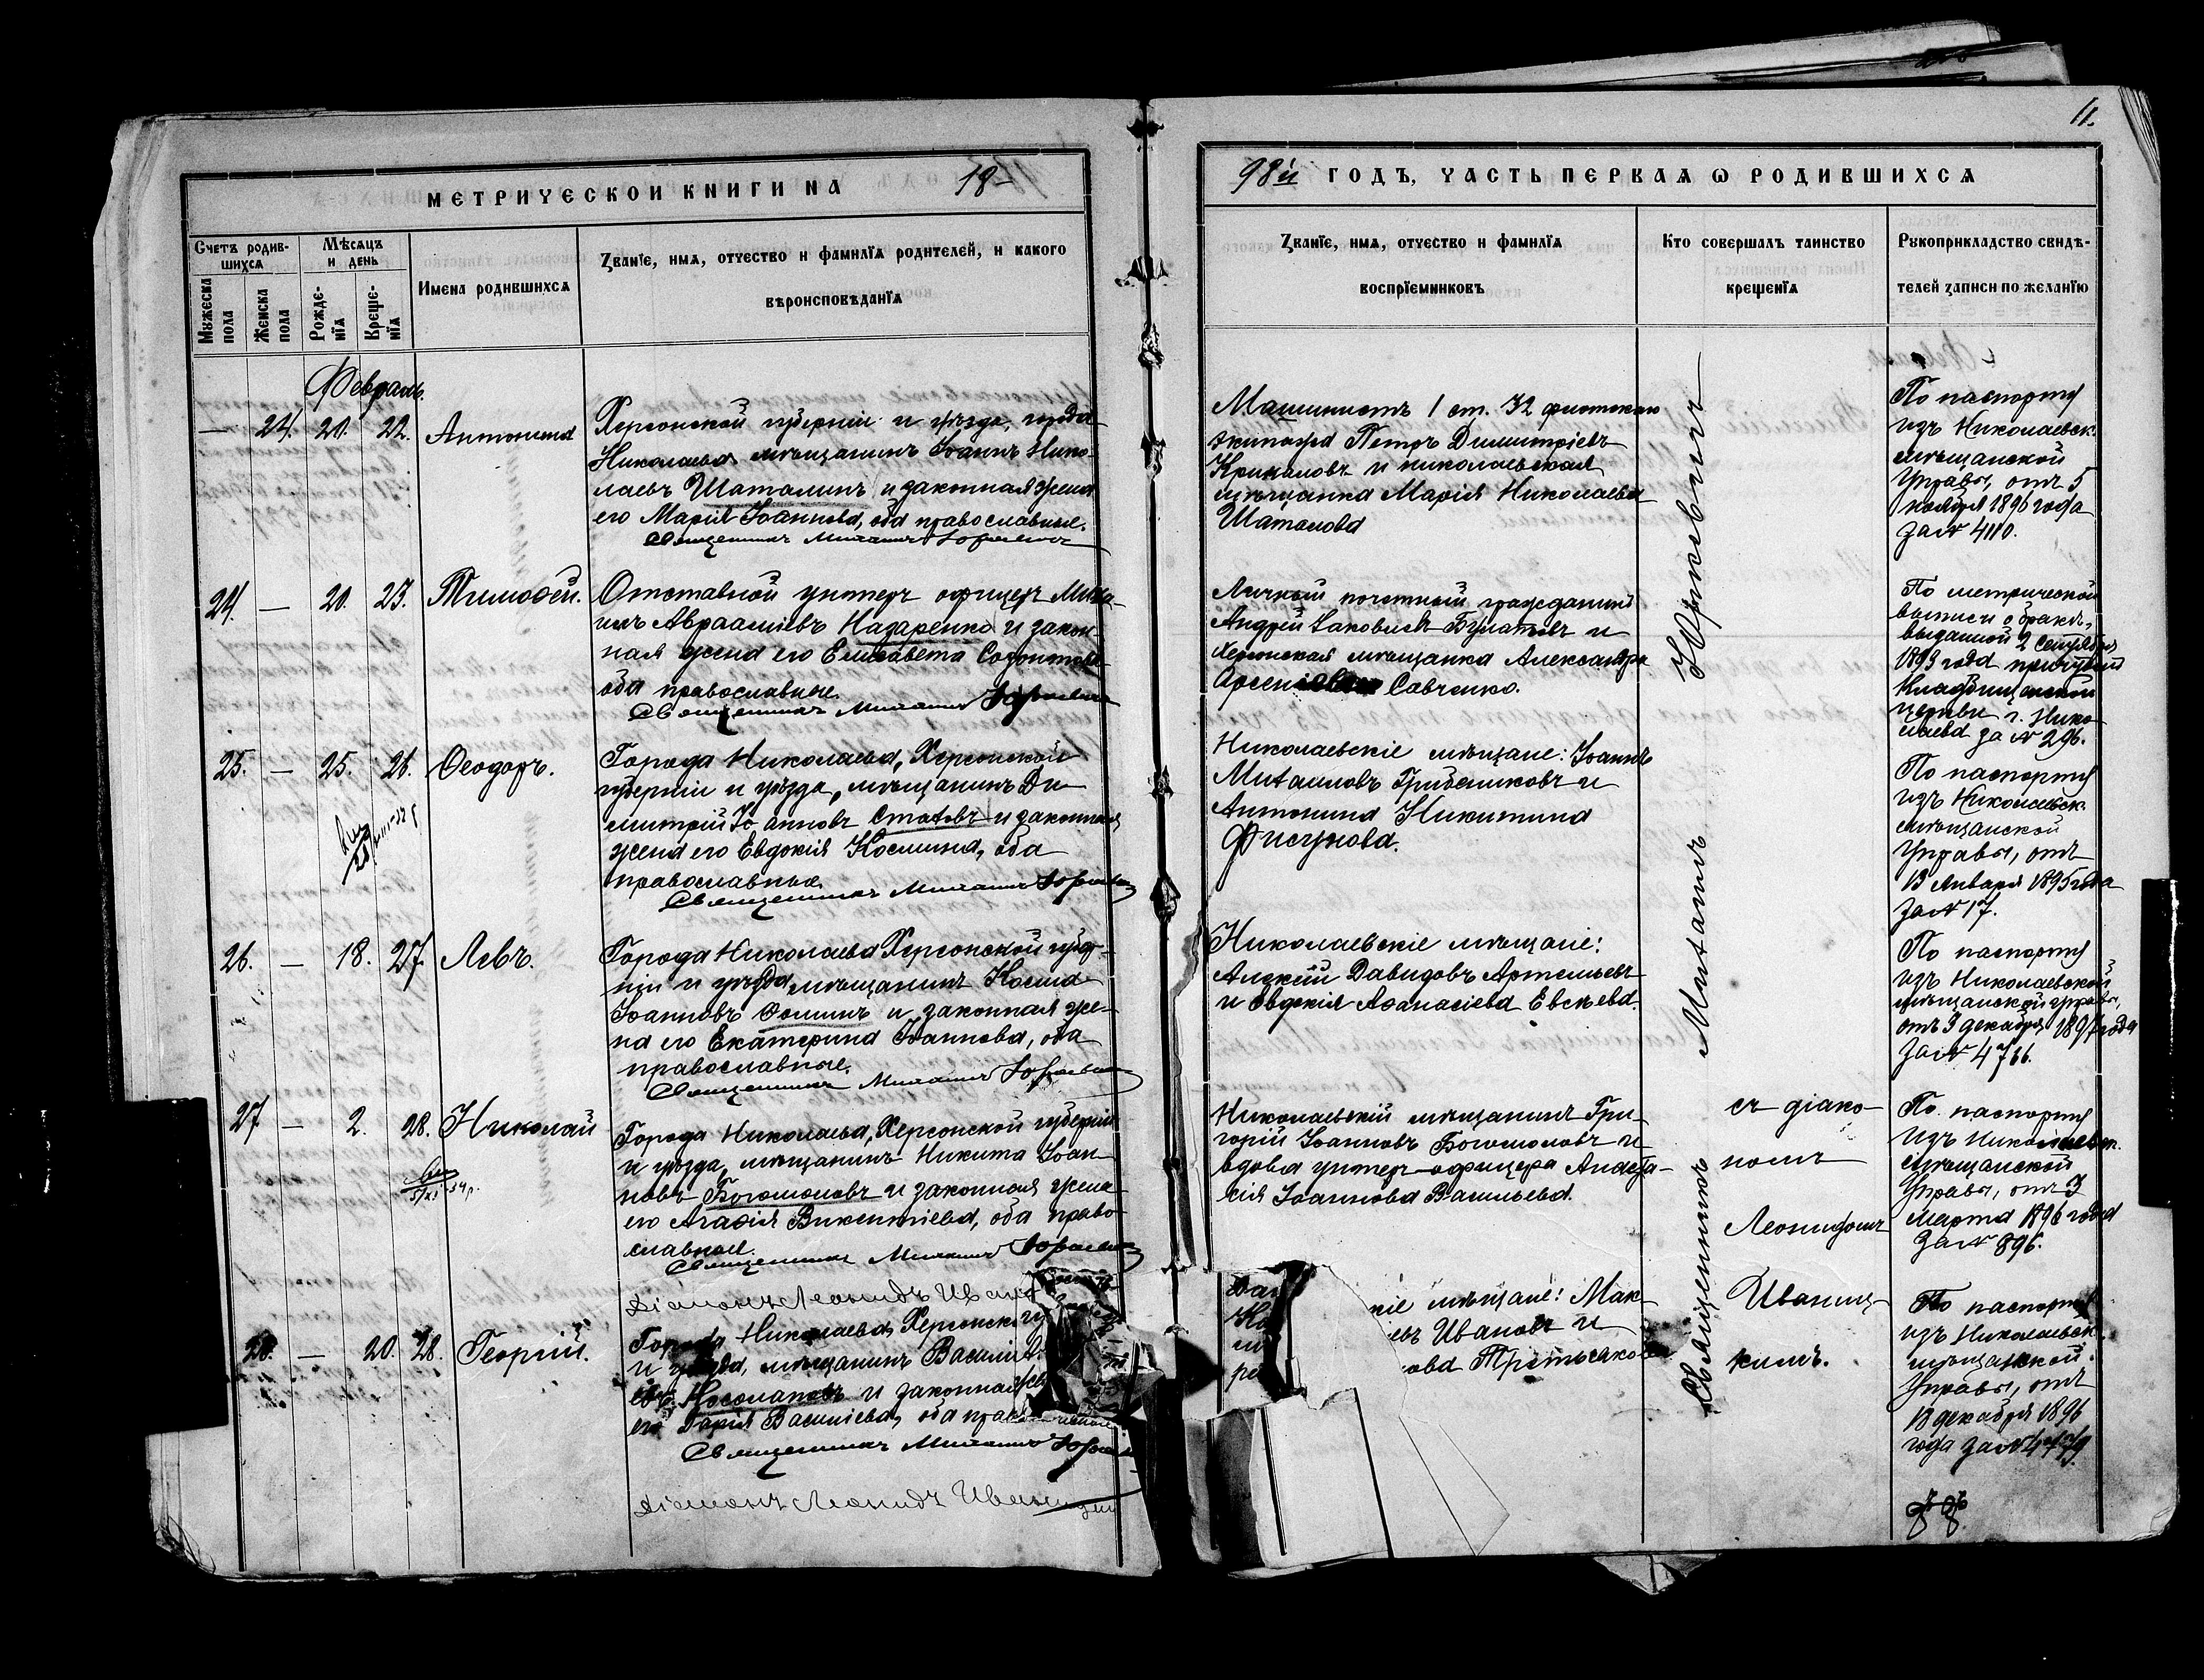 11.
МЕТРИЧЕСКОЙ КНИГИ НА 18-
98й ГОДЪ, ЧАСТЬ ПЕРВАЯ Ѡ РОДИВШИХСЯ
Счетъ родив-
шихся
Мужеска пола
Женска пола
Мѣсяцъ
и день
Рожде-
нія
Креще-
нія
Имена родившихся
Званіе, имя, отчество и фамилія родителей, и какого
вѣроисповѣданія
Званіе, имя, отчество и фамилія
воспріемниковъ
Кто совершалъ таинство
крещенія
Рукоприкладство свидѣ-
телей записи по желанію
Февраль.
— 24. 20. 22. Антонина
Херсонской губерніи и уѣзда, города
Николаева мѣщанинъ Іоаннъ Нико-
лаевъ Шаталинъ и законная жена
его Марія Іоаннова, оба православные.
Священникъ Митаилъ Юркевичъ
Машинистъ 1 ст. 32 флотскаго
экипажа Петръ Димитріевъ
и николаевская
мѣщанка Марія Николаева
Шаталова
По паспорту
изъ Николаевск.
мѣщанской
Управы, отъ 5
ноября 1896 года
за № 4110.
24. — 20. 23. Тимоѳей.
Отставной унтеръ офицеръ Миха-
илъ Авраамiевъ Назаренко и закон-
ная жена его Елисавета Созонтова
оба православные.
Священникъ Михаилъ Юркевичъ
Личный почетный гражданинъ
Андрей Іаковлевъ Булатовъ и
Херсонская мѣщанка Александра
Савченко.
По метрической
выписи о бракѣ,
выданной 2 Сентября
1893 года причтомъ
Кладбищенской
церкви г. Нико-
лаева за № 296.
25. — 25. 26. Ѳеодоръ.
Города Николаева, Херсонской
губерніи и уѣзда, мѣщанинъ Ди
митрій Іоанновъ Статовъ и законная
жена его Евдокія Космина, оба
православные
Священникъ Михаилъ Юркевичъ
Николаевскіе мѣщане: Іоаннъ
Михаиловъ Гребенниковъ и
Антонина Никитина
Фисунова.
По паспорту
изъ Николаевск.
мѣщанской
Управы, отъ
13 Января 1895 года
за № 17.
26. — 18. 27. Левъ.
Города Николаева Херсонской губер-
ніи и уѣзда, мѣщанинъ Косма
Іоанновъ Ѳоминъ и законная же-
на его Екатерина Іоаннова, оба
православные.
Священникъ Михаилъ Юркевичъ
Николаевскіе мѣщане:
Алексій Давидовъ Артемьевъ
и Евдокія Аѳанасіева Евсѣева.
По паспорту
изъ Николаевской
мѣщанской управы,
отъ 3 декабря 1897 года
за № 4766.
27 — 2. 28. Николай
Города Николаева, Херсонской губерніи
и уѣзда, мѣщанинъ Никита Іоан-
новъ Богомоловъ и законная жена
его Агаѳія Викентіева, оба право-
славные.
Священникъ Михаилъ Юркевичъ
Діаконъ Леонидъ Иван
Николаевскій мѣщанинъ Гри-
горій Іоанновъ Богомоловъ и
вдова унтеръ-офицера Анаста-
сія Іоаннова Васильева.
По паспорту
изъ Николаевск.
мѣщанской
Управы, отъ 3
марта 1896 года
за № 896.
28. — 20. 28. Георгій.
Города Николаева, Херсонск. гу
и уѣзда, мѣщанинъ Василій
евъ Косолаповъ и законная же
его Дарія Василіева, оба прав
Священникъ Михаилъ Юркевичъ
Діаконъ Леонидъ Иваницкій
кіе мѣщане: Мак-
евъ Ивановъ и
ова Третьякова
По паспорту
изъ Николаевск.
мѣщанской
Управы, отъ
18 декабря 1896
года за № 4479.
Священникъ Михаилъ Юркевичъ
съ діако-
номъ
Леонидомъ
Иваниц-
кимъ.